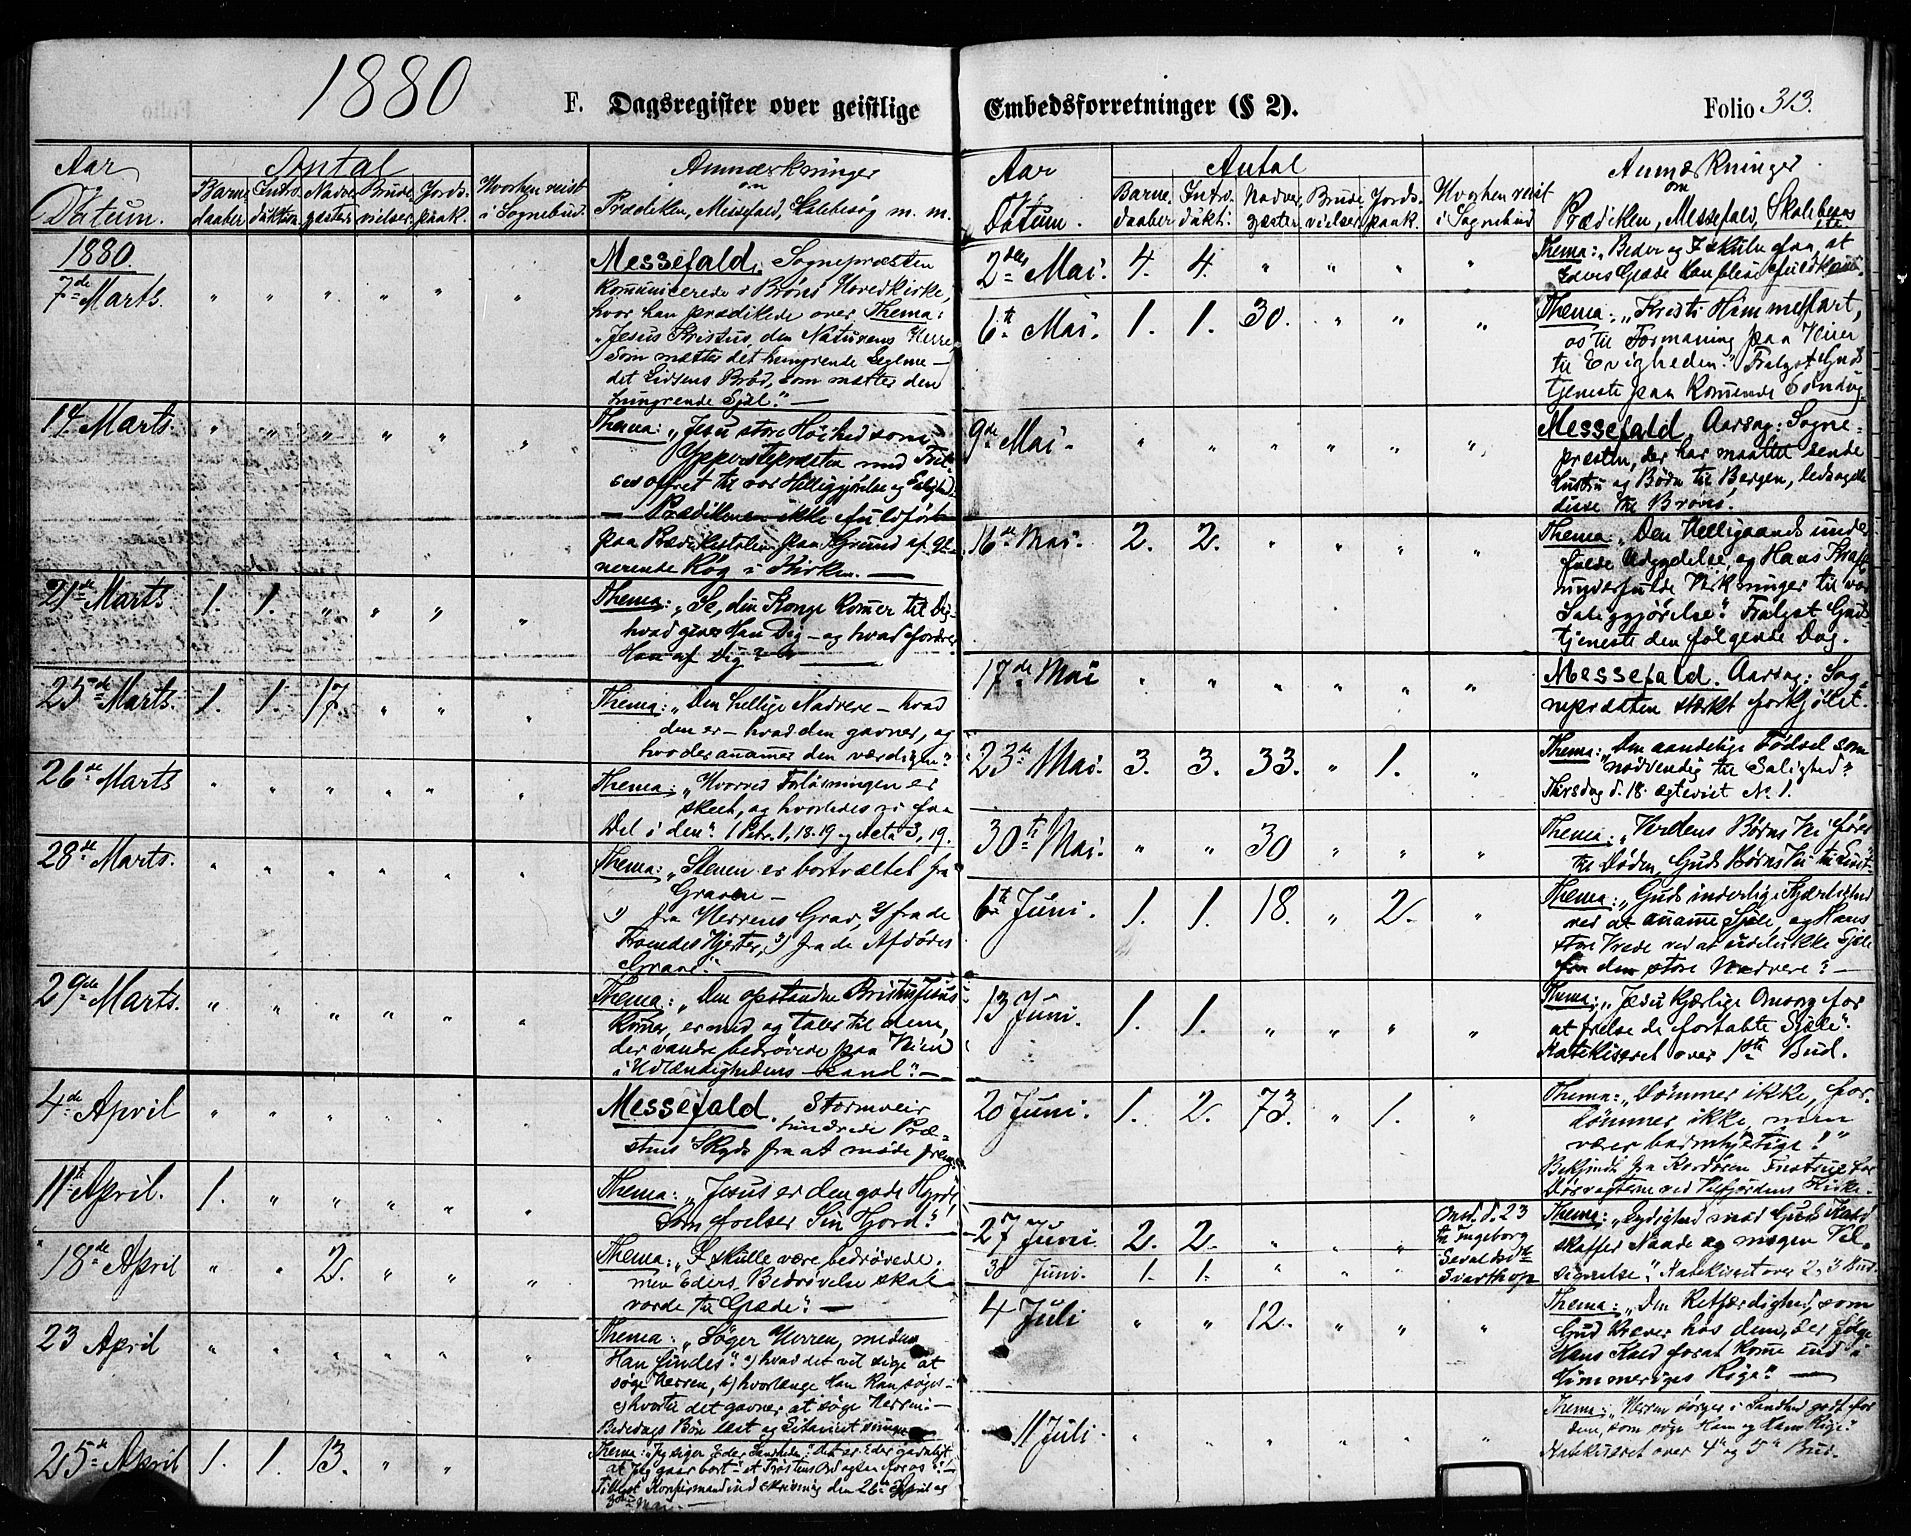 1880
F. Dagsregister over geistlige
Aar
Datum.
Antal
Barne
daaber
Intro
duktion
Nadver
gæster
Brude
vielser
Jords
paak.
Hvorhen reist
i Sognebud.
Anmærkninger
om
Prædiken, Messefald, Skolebesøg m. m.
1880.
7de Marts. " " " " " "
Messefald. Sognepræsten
kommunicerede i Brønø Hovedkirke,
hvor han prædikede over Thema:
"Jesus Kristus, den Naturens Herre
som mætter det hungrende Legeme –
det Livsens Brød, som mætter den
hungrende Sjæl." –
14 Marts. " " " " " "
Thema: "Jesu store Høihed som
Ypperstepræsten med
offret til vor Helliggjørelse og Salighed.
– Prædikene ikke fuldført
paa Prædikestolen paa Grund af ge-
nerende Røg i Kirken. –
21de Marts 1. 1. " " " "
Thema: "Se, din Konge kommer til Dig –
hvad giver Han Dig – og hvad fordrer
Han af Dig? –
25de Marts. 1. 1. 17. " " "
Thema: "Den hellige Nadvere – hvad
den er – hvad den gavner, og
hvo der anamer den værdigen."
26de Marts " " " " " "
Thema: "Hvorved Forløsningen er
skeet, og hvorledes vi faa
Del i den". 1 Petr. 1, 18-19 og Acta 3, 19.
28de Marts. " " " " " "
Thema: "Stenen er bortvæltet fra
Graven –
1) fra Herrens Grav, 2) fra de
Troendes Hjerter, 3) fra de Afdødes
Grave." –
29de Marts. " " " " " "
Thema: "Den opstandne Kristus Jesus
kommer, er med og taler til dem,
der vandre bedrøvede paa Veien
i Udlændighedens Land". –
4de April " " " " " "
Messefald. Stormveir
hindrede Præ-
stens Skyds fra at møde frem.
11te April. 1. " " " " "
Thema: "Jesus er den gode Hyrde
som frelser Sin Hjord".
18de April " " 2. " " "
Thema: "I skulle være bedrøvede.
men Eders Bedrøvelse skal
vorde til Glæde". –
23 April " " " " " "
Thema: "Søger Herren, medens
Han findes". a) hvad det vil sige at
søge Herren, b) hvorlænge Han kan søges –
c) hvortil det gavner at søge Herren. –
Bededags Bøn læst og Litaniet
25de April 1. 1. 13. " "
Thema: "Jeg siger Eder Sandheden: det er Eder gavnligt
at jeg gaar bort" – et Trøstens Ord ogsaa for os". –
Tillyst Konfirmandindskrivning den 26de April og
Mai. –
Embedsforretninger (§ 2).
Folio 313.
Aar
Datum.
Antal
Barne
daaber
Intro
dukt.
Nadver
gæster
Brude
vielser
Jords
paak.
Hvorhen reist
i Sognebud
Anmærkninger
om
Prædiken, Messefald, Skolebesøg
etc.
2den Mai. 4. 4. " " " "
Thema: "Beder og I skulle faa, at
Eders Glæde kan blive fuldkommen".
6te Mai. 1. 1. 30. " " "
Thema: "Kristi Himmelfart,
os til Formaning paa Veien
til Evigheden." Fralyst Guds-
tjeneste paa kommende Søndag.
9de Mai. " " " " " "
Messefald. Aarsag: Sogne-
præsten, der har maattet sende
Hustru og Børn til Bergen, ledsagede
disse til Brønø.
16de Mai. 2. 2. " " " "
Thema: "Den Helligaands under
fulde Udgydelse, og Hans Kraft
underfulde Virkninger til vor
Saliggjørelse". Fralyst Guds-
tjeneste den følgende Dag.
17de Mai " " " " " "
Messefald. Aarsag: Sog-
nepræsten stærkt forkjølet.
23de Mai. 3. 3. 33. " 1. "
Thema: "Den aandelige Fødsel som
nødvendig til Salighed".
Thirsdag d. 18. ægteviet No 1.
30te Mai. " " 30 " " "
Thema: "Verdens Børns Vei fører
til Døden, Guds Børns Vei til Livet".
6te Juni. 1. 1. 18. " 2. "
Thema: "Guds inderlige Kjærlighed
ved at anamme Sjæle, og Hans
store Vrede ved at udelukke Sjæle
fra den store Nadvere". –
13 Juni. 1. 1. " " " "
Thema: "Jesu kjærlige Omsorg for
at frelse de fortabte Sjæle".
Katekiseret over 1ste Bud.
20 Juni. 1. 2. 73. " 1. "
Thema: "Dømmer ikke, for-
dømmer ikke, men
værer barmhjertige!"
Bekjendtg. fra
Dørvogterne ved Velfjordens Kirke.
27 Juni 2. 2. " " "
Ons. d. 23
til Ingeborg
Sevaldsd.
Svarthop
Thema: "Lydighed mod Guds Kald
skaffer Naade og megen Vel-
signelse". Katekiseret over 2 og 3 Bud.
30 Juni. 1. 1. " " "
4 Juli " " 12. " " "
Thema: "Den Retfærdighed, som
Gud kræver hos dem, der følge
Hans Kald for at komme ind i
Himmeriges Rige". –
11 Juli " " " " " "
Thema: "Herren sørger i Sandhed godt for
dem, som søge Ham og Hans Rige".
Katekiseret over 4de og 5te Bud.